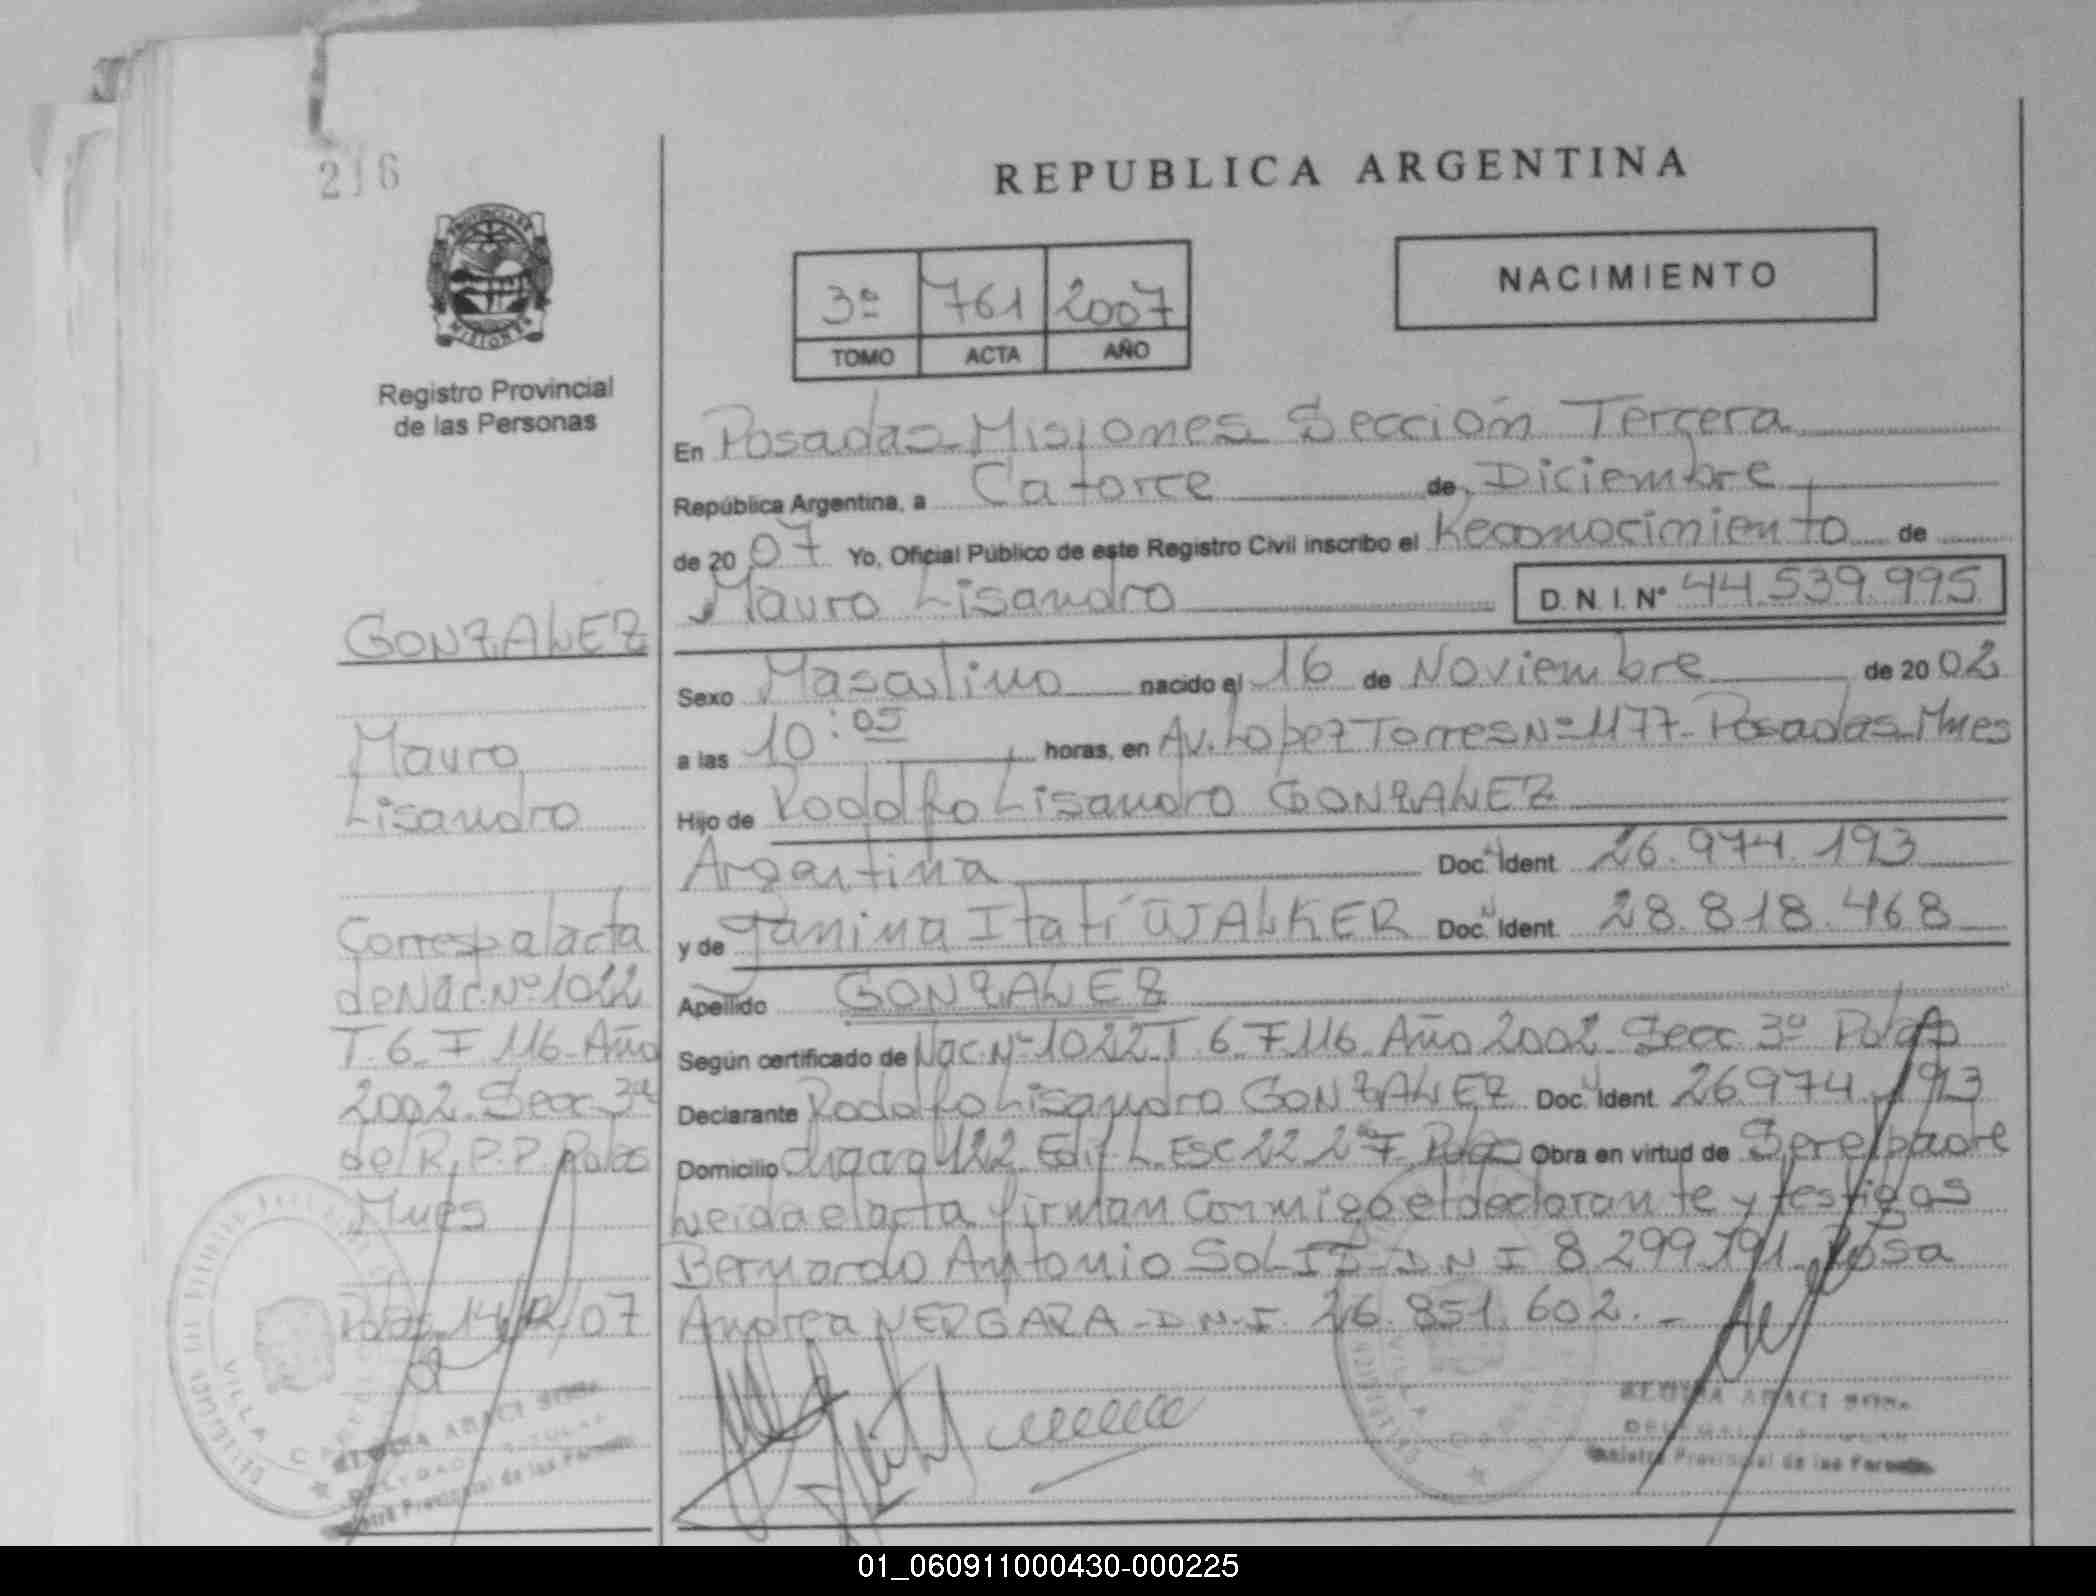 216
REPUBLICA ARGENTINA
3º 761 2007
TOMO ACTA AÑO
NACIMIENTO
PROVINCIA DE
MISIONES
Registro Provincial
de las Personas
En Posadas Misiones Sección Tercera
República Argentina, a Catorce de Diciembre
de 20 07 Yo, Oficial Público de este Registro Civil inscribo el Reconocimiento de
Mauro Lisandro D.N.I. Nº 44.539.995
Sexo Masculino nacido el 16 de Noviembre de 20 02
a las 10:05 horas, en Av. Lopez Torres Nº 1177- Posadas Mnes
Hijo de Rodolfo Lisandro GONZALEZ
Argentina Doc. Ident. 26.974.193
y de Yanina Itatí WALKER Doc. Ident. 28.818.468
Apellido GONZALEZ
Según certificado de Nac. Nº 1022 T. 6 F 116 Año 2002 Secc 3º Pdas
Declarante Rodolfo Lisandro GONZALEZ Doc. Ident. 26974.193
Domicilio 122 Edif L. Esc 22 Pdas Obra en virtud de Ser el padre
Leida el acta firman conmigo el declarante y testigos
Bernardo Antonio SOLIS D N I 8.299.191 Rosa
Andrea VERGARA - D.N.I. 26.851.602.-
GONZALEZ
Mauro
Lisandro
Corresp al acta
de Nac. Nº 1022
T. 6 F 116 Año
2002 Secc 3ª
del R.P.P. Pdas
Mnes
Pdas 14/12/07
VILLA
VILLA
Provincial de las
Provincial de las
01_060911000430-000225